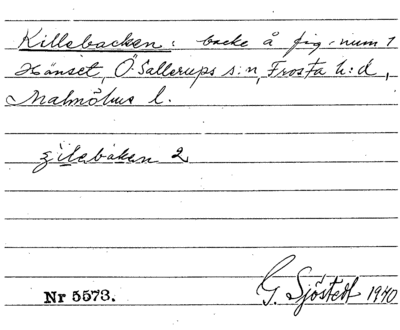 Killebacken: backe å fig.num 1
Hänset, Ö. Sallerups s:n, Frosta h:d,
Malmöhus l.
zilebaken 2
Nr 5573.
G. Sjöstedt 1940